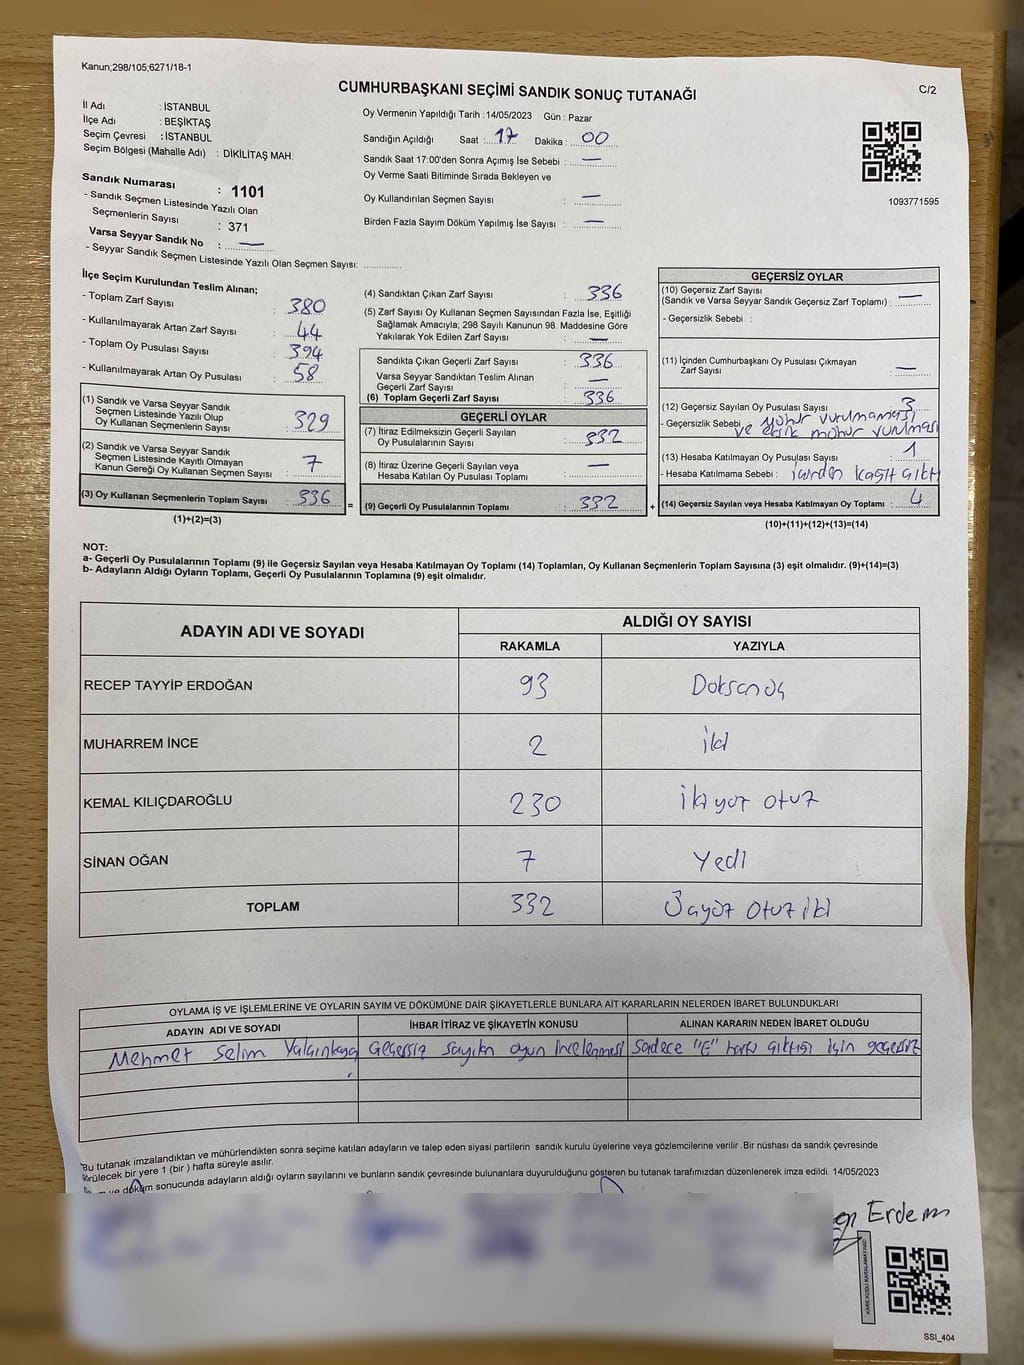 Kanun;298/105;6271/18-1
CUMHURBAŞKANI SEÇİMİ SANDIK SONUÇ TUTANAĞI
C/2
İl Adı : İSTANBUL
İlçe Adı : BEŞİKTAŞ
Seçim Çevresi : İSTANBUL
Seçim Bölgesi (Mahalle Adı) : DİKİLİTAŞ MAH.
Sandık Numarası : 1101
- Sandık Seçmen Listesinde Yazılı Olan
Seçmenlerin Sayısı : 371
Varsa Seyyar Sandık No : —
- Seyyar Sandık Seçmen Listesinde Yazılı Olan Seçmen Sayısı: ..............
Oy Vermenin Yapıldığı Tarih : 14/05/2023 Gün : Pazar
Sandığın Açıldığı Saat : 17 Dakika : 00
Sandık Saat 17:00'den Sonra Açımış İse Sebebi : —
Oy Verme Saati Bitiminde Sırada Bekleyen ve
Oy Kullandırılan Seçmen Sayısı : —
Birden Fazla Sayım Döküm Yapılmış İse Sayısı : —
1093771595
İlçe Seçim Kurulundan Teslim Alınan;
- Toplam Zarf Sayısı : 380
- Kullanılmayarak Artan Zarf Sayısı : 44
- Toplam Oy Pusulası Sayısı : 394
- Kullanılmayarak Artan Oy Pusulası : 58
(1) Sandık ve Varsa Seyyar Sandık
Seçmen Listesinde Yazılı Olup
Oy Kullanan Seçmenlerin Sayısı : 329
(2) Sandık ve Varsa Seyyar Sandık
Seçmen Listesinde Kayıtlı Olmayan
Kanun Gereği Oy Kullanan Seçmen Sayısı : 7
(3) Oy Kullanan Seçmenlerin Toplam Sayısı : 336
(1)+(2)=(3)
(4) Sandıktan Çıkan Zarf Sayısı : 336
(5) Zarf Sayısı Oy Kullanan Seçmen Sayısından Fazla İse, Eşitliği
Sağlamak Amacıyla; 298 Sayılı Kanunun 98. Maddesine Göre
Yakılarak Yok Edilen Zarf Sayısı : —
Sandıkta Çıkan Geçerli Zarf Sayısı : 336
Varsa Seyyar Sandıktan Teslim Alınan
Geçerli Zarf Sayısı : —
(6) Toplam Geçerli Zarf Sayısı : 336
GEÇERLİ OYLAR
(7) İtiraz Edilmeksizin Geçerli Sayılan
Oy Pusulalarının Sayısı : 332
(8) İtiraz Üzerine Geçerli Sayılan veya
Hesaba Katılan Oy Pusulaları Toplamı : —
= (9) Geçerli Oy Pusulalarının Toplamı : 332
GEÇERSİZ OYLAR
(10) Geçersiz Zarf Sayısı
(Sandık ve Varsa Seyyar Sandık Geçersiz Zarf Toplamı) : —
- Geçersizlik Sebebi :
(11) İçinden Cumhurbaşkanı Oy Pusulası Çıkmayan
Zarf Sayısı : —
(12) Geçersiz Sayılan Oy Pusulası Sayısı : 3
- Geçersizlik Sebebi : mühür vurulmaması
ve eksik mühür vurulması
(13) Hesaba Katılmayan Oy Pusulası Sayısı : 1
- Hesaba Katılmama Sebebi : içerden kağıt çıktı
+ (14) Geçersiz Sayılan veya Hesaba Katılmayan Oy Toplamı : 4
(10)+(11)+(12)+(13)=(14)
NOT:
a- Geçerli Oy Pusulalarının Toplamı (9) ile Geçersiz Sayılan veya Hesaba Katılmayan Oy Toplamı (14) Toplamları, Oy Kullanan Seçmenlerin Toplam Sayısına (3) eşit olmalıdır. (9)+(14)=(3)
b- Adayların Aldığı Oyların Toplamı, Geçerli Oy Pusulalarının Toplamına (9) eşit olmalıdır.
ADAYIN ADI VE SOYADI ALDIĞI OY SAYISI
RAKAMLA YAZIYLA
RECEP TAYYİP ERDOĞAN 93 Doksanüç
MUHARREM İNCE 2 iki
KEMAL KILIÇDAROĞLU 230 ikiyüz otuz
SİNAN OĞAN 7 Yedi
TOPLAM 332 Üçyüz otuz iki
OYLAMA İŞ VE İŞLEMLERİNE VE OYLARIN SAYIM VE DÖKÜMÜNE DAİR ŞİKAYETLERLE BUNLARA AİT KARARLARIN NELERDEN İBARET BULUNDUKLARI
ADAYIN ADI VE SOYADI İHBAR İTİRAZ VE ŞİKAYETİN KONUSU ALINAN KARARIN NEDEN İBARET OLDUĞU
Mehmet Selim Yalçınkaya Geçersiz sayılan oyun incelenmesi Sadece "E" harfi çıktığı için geçersiz
Bu tutanak imzalandıktan ve mühürlendikten sonra seçime katılan adayların ve talep eden siyasi partilerin sandık kurulu üyelerine veya gözlemcilerine verilir .Bir nüshası da sandık çevresinde
görülecek bir yere 1 (bir ) hafta süreyle asılır.
ve döküm sonucunda adayların aldığı oyların sayılarını ve bunların sandık çevresinde bulunanlara duyurulduğunu gösteren bu tutanak tarafımızdan düzenlenerek imza edildi. 14/05/2023
Erdem
KARE KODU KARALAMAYINIZ!
SSI_404